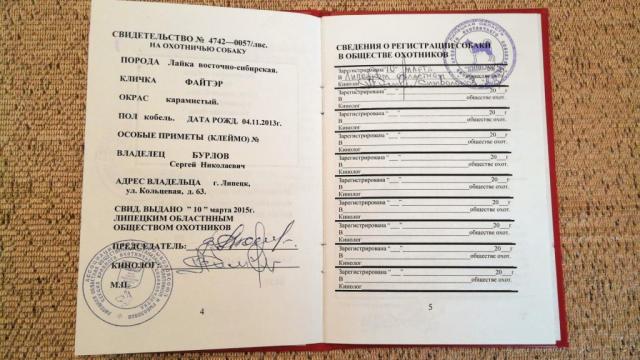 СВИДЕТЕЛЬСТВО № 4742—0057/лвс.
НА ОХОТНИЧЬЮ СОБАКУ
ПОРОДА Лайка восточно-сибирская.
КЛИЧКА ФАЙТЭР
ОКРАС карамистый.
ПОЛ кобель. ДАТА РОЖД. 04.11.2013г.
ОСОБЫЕ ПРИМЕТЫ (КЛЕЙМО) №
ВЛАДЕЛЕЦ БУРЛОВ
Сергей Николаевич
АДРЕС ВЛАДЕЛЬЦА г. Липецк,
ул. Кольцевая, д. 63.
СВИД. ВЫДАНО " 10 " марта 2015г.
ЛИПЕЦКИМ ОБЛАСТНЫМ
ОБЩЕСТВОМ ОХОТНИКОВ
ПРЕДСЕДАТЕЛЬ:
КИНОЛОГ:
М.П.
4
СВЕДЕНИЯ О РЕГИСТРАЦИИ СОБАКИ
В ОБЩЕСТВЕ ОХОТНИКОВ
Зарегистрирована "10" МАРТА
в Липецком областном
Кинолог
Зарегистрирована "___" 20__г
В общество охот.
Кинолог
Зарегистрирована "___" 20__г
В общество охот.
Кинолог
Зарегистрирована "___" 20__г
В общество охот.
Кинолог
Зарегистрирована "___" 20__г
В общество охот.
Кинолог
Зарегистрирована "___" 20__г
В общество охот.
Кинолог
Зарегистрирована "___" 20__г
В общество охот.
Кинолог
Зарегистрирована "___" 20__г
В общество охот.
Кинолог
Зарегистрирована "___" 20__г
В общество охот.
Кинолог
Зарегистрирована "___" 20__г
В общество охот.
Кинолог
5